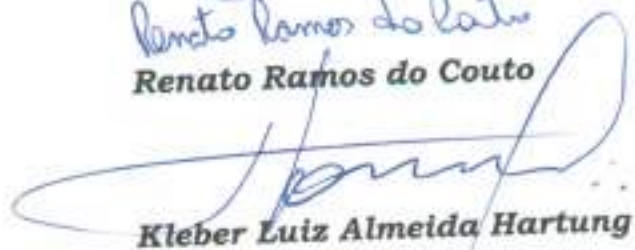 Renato Ramos do Couto
Renato Ramos do Couto
Kleber Luiz Almeida Hartung